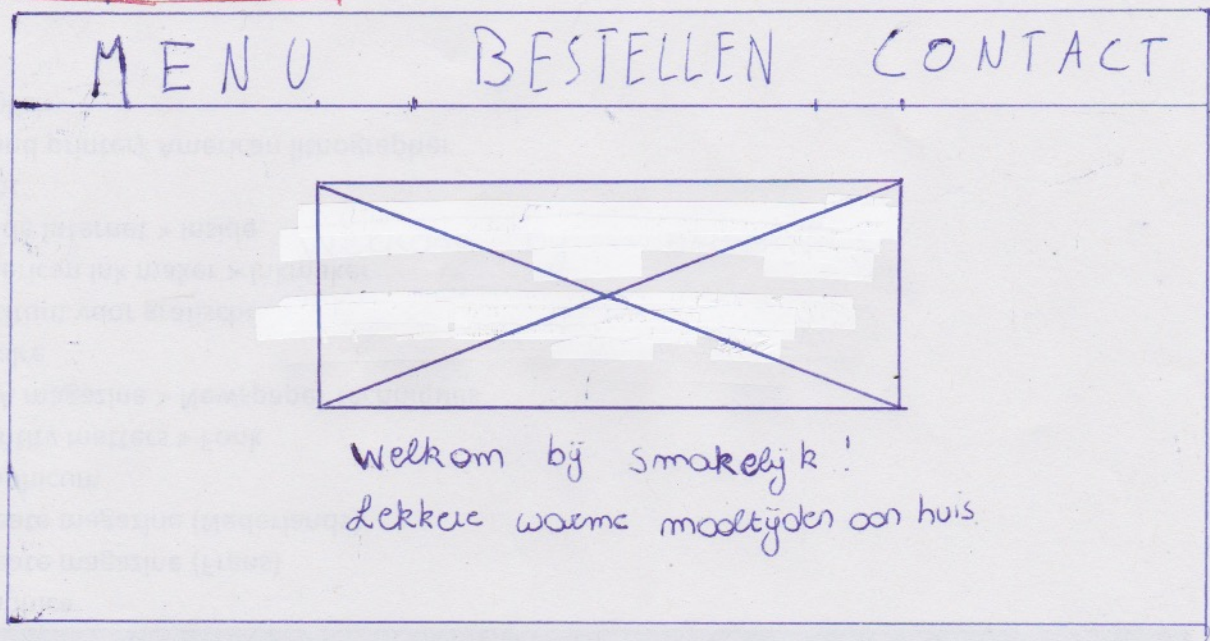 MENU BESTELLEN CONTACT
Welkom bij smakelijk!
Lekkere warme maaltijden aan huis.